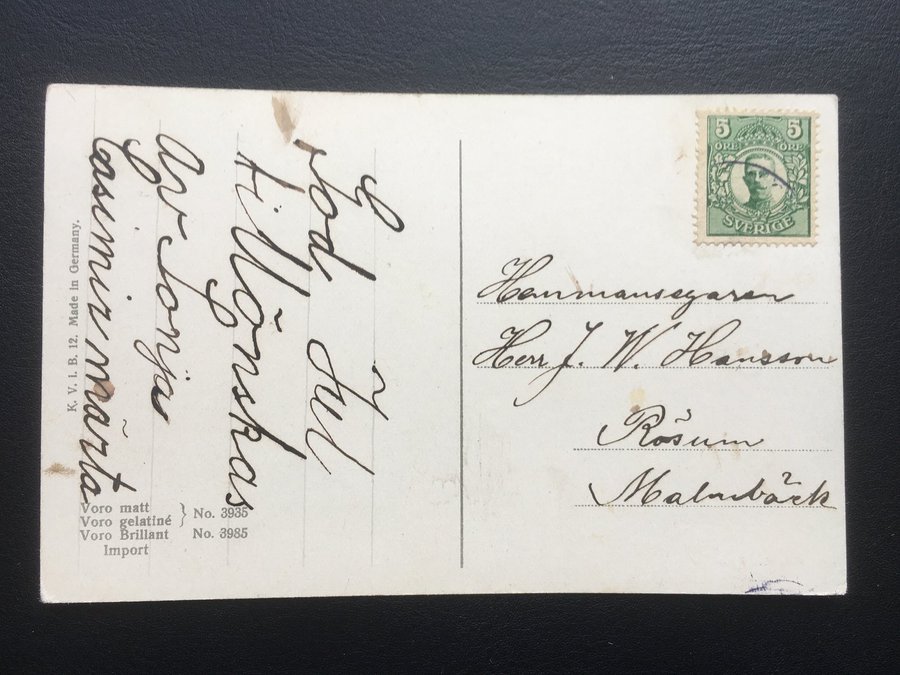 God Jul
tillönskas
av Sonja
Casimir märta
K. V. i. B. 12. Made in Germany.
Voro matt
Voro gelatiné } No. 3935
Voro Brillant No. 3985
Import
5 5
ÖRE ÖRE
SVERIGE
Hemmansegaren
Herr J. W. Hansson
Rösum
Malmbäck